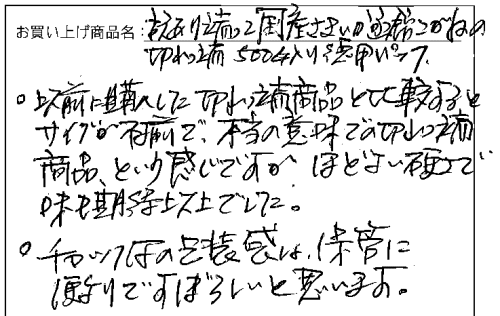 お買い上げ商品名：訳あり端っこ国産さきいか
切れっ端 500g入り 徳用パック
○以前に購入した切れっ端商品と比較すると
サイズが不揃いで、本当の意味での切れっ端
商品、という感じですが ほどよい硬さで
味も期待以上でした。
○チャック付の包装感は、保管に
便利ですばらしいと思います。